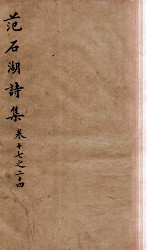 范石湖詩集 卷十七之二十四